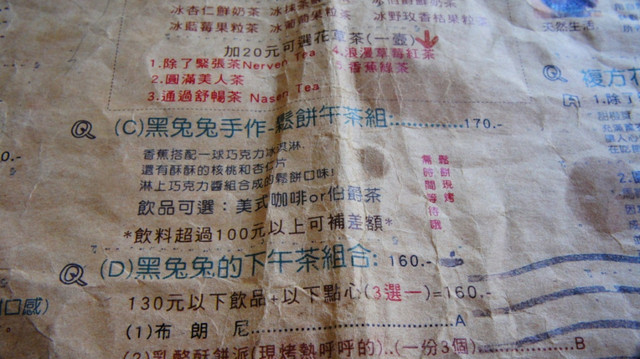 冰杏仁鮮奶茶
冰藍莓果粒茶 冰葡萄果粒茶 冰野玫香桔果粒茶
天然生活
加20元可選花草茶(一壺)
1.除了緊張茶Nerven Tea 4.浪漫草莓紅茶
2.圓滿美人茶 5.香蕉綠茶
3.通過舒暢茶 Nasen Tea
複方
(C)黑兔兔手作-鬆餅午茶組............170.-
香蕉搭配一球巧克力冰淇淋.
還有酥酥的核桃和杏仁片
淋上巧克力醬組合成的鬆餅口味!
飲品可選：美式咖啡or伯爵茶
*飲料超過100元以上可補差額*
鬆餅現烤
需時間等待哦
(D)黑兔兔的下午茶組合: 160.-
130元以下飲品+以下點心(3選一)=160.-
口感)
(1)布 朗 尼............................A
(2)乳酪酥餅派(現烤熱呼呼的)..(一份3個)........B